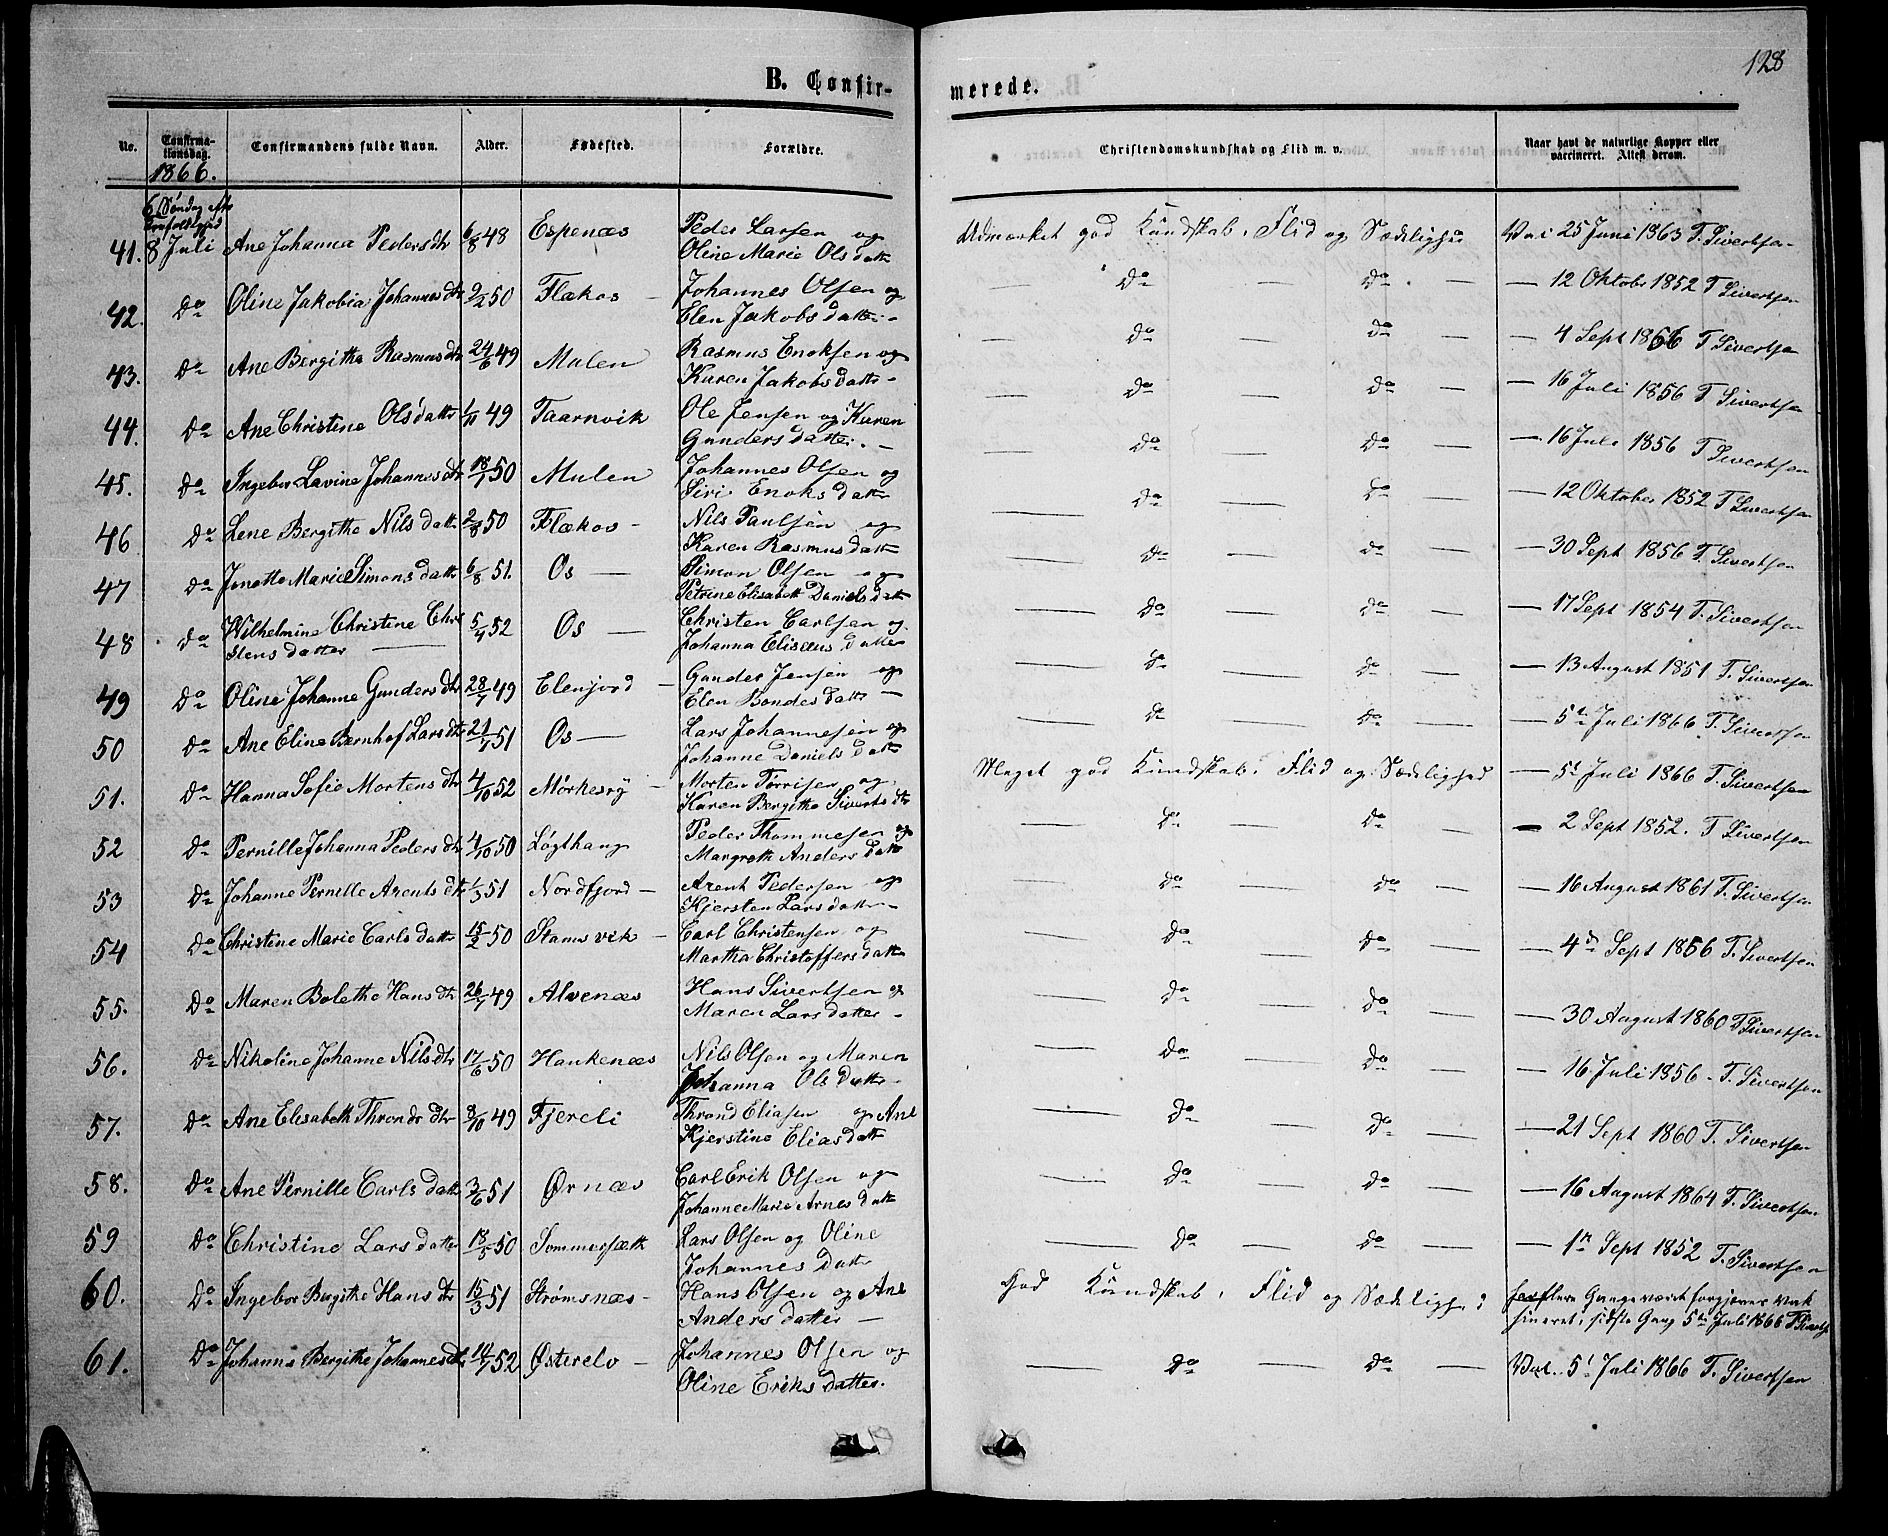 128
B. Confirmerede.
No. Confirmationsdag. Confirmandens fulde Navn. Alder. Fødested. Forældre. Christendomskundskab og Flid m. v. Naar havt de naturlige Kopper eller vaccineret. Attest derom.
1866.
6 Søndag
41. 8 Juli Ane Johanna Pedersdtr 6/8 48 Espenæs Peder Larsen og Oline Marie Olsdattr Udmærket god Kundskab, Flid og Sædelighed 25 Juni 1863 T. Sivertsen
42. Do Oline Jakobia Johannesdtr 9/2 50 Flakos Johannes Olsen og Elen Jakobsdatter Do Do 12 Oktobr 1852 T Sivertsen
43. Do Ane Bergitha Rasmusdtr 24/6 49 Mulen Rasmus Enoksen og Karen Jakobsdattr Do Do 4 Sept T Sivertsen
44. Do Ane Christine Olsdattr 1/11 49 Taarnvik Ole Jensen og Karen Gundersdatter Do Do 16 Juli 1856 T Sivertsen
45. Do Ingebor Lavine Johannesdtr 18/1 50 Mulen Johannes Olsen og Siri Enoksdattr Do Do 16 Juli 1856 T Sivertsen
46 Do Lene Bergithe Nilsdattr 2/8 50 Flakos Nils Paulsen og Karen Rasmusdattr Do Do 12 Oktober 1852 T Sivertsen
47 Do Jenette Marie Simonsdattr 6/8 51. Os Simon Olsen og Petrine Elisabett Danielsdattr Do Do 30 Sept 1856 T. Sivertsen
48 Do Wilhelmine Christine Christensdatter 5/4 52 Os Christen Carlsen og Johanna Eliseusdatter Do Do 17 Sept 1854 T. Sivertsen
49 Do Oline Johanne Gundersdtr 28/7 49 Elenjord Gunder Jensen og Elen Bondesdattr Do Do 13 August 1851 T. Sivertsen
50 Do Ane Eline Bernhof Larsdtr 21/7 51 Os Lars Johannesen og Johanne Danielsdattr Do Do 5te Juli 1866 T. Sivertsen
51. Do Hanna Sofie Mortensdtr 4/10 52 Mørkesry Morten Tørrisen og Karen Bergithe Sivertsdtr Meget god Kundskab, Flid og Sædelighed 5t Juli 1866 T. Sivertsen
52 Do Pernille Johanna Pedersdtr 4/10 50 Løgthaug Peder Thommesen og Margreth Andersdattr Do Do 2 Sept 1852. T Sivertsen
53 Do Johanne Pernille Arentsdtr 1/3 51 Nordfjord Arent Pedersen og Kjersten Larsdatter Do Do 16 August 1861 T. Sivertsen
54 Do Christine Marie Carlsdatter 15/2 50 Stamsvik Carl Christensen og Martha Christoffersdattr Do Do 4de Sept 1856 T. Sivertsen
55. Do Maren Bolethe Hansdtr 26/7 49 Alvenæs Hans Sivertsen og Maren Larsdatter Do Do 30 August 1860 T Sivertsen
56. Do Nikoline Johanne Nilsdtr 17/6 50 Haukenæs Nils Olsen og Maren Johanna Olsdatter Do Do 16 Juli 1856 T. Sivertsen
57. Do Ane Elisabeth Throndsdtr 8/10 49 Fjereli Thrond Eliasen og Ane Kjerstine Eliasdattr Do Do 21 Sept 1860 T. Sivertsen
58. Do Ane Pernille Carlsdattr 3/6 51 Ørnæs Carl Erik Olsen og Johanne Marie Arnesdattr Do Do 16 August 1864 T. Sivertsen
59 Do Christine Larsdatter 18/5 50 Sommersætt Lars Olsen og Oline Johannesdattr Do Do 1n Sept 1852 T. Sivertsen
60. Do Ingebor Bergithe Hansdtr 15/3 51 Strømsnæs Hans Olsen og Ane Andersdatter God Kundskab, Flid og Sædelighed flere Gange været forgjæves vaksineret, sidste Gang 5te Juli 1866 T Sivertsen
61. Do Johanna Bergithe Johannesdtr 14/7 52 Østerelv Johannes Olsen og Oline Eriksdatter. Do Do 5t Juli 1866 T. Sivertsen